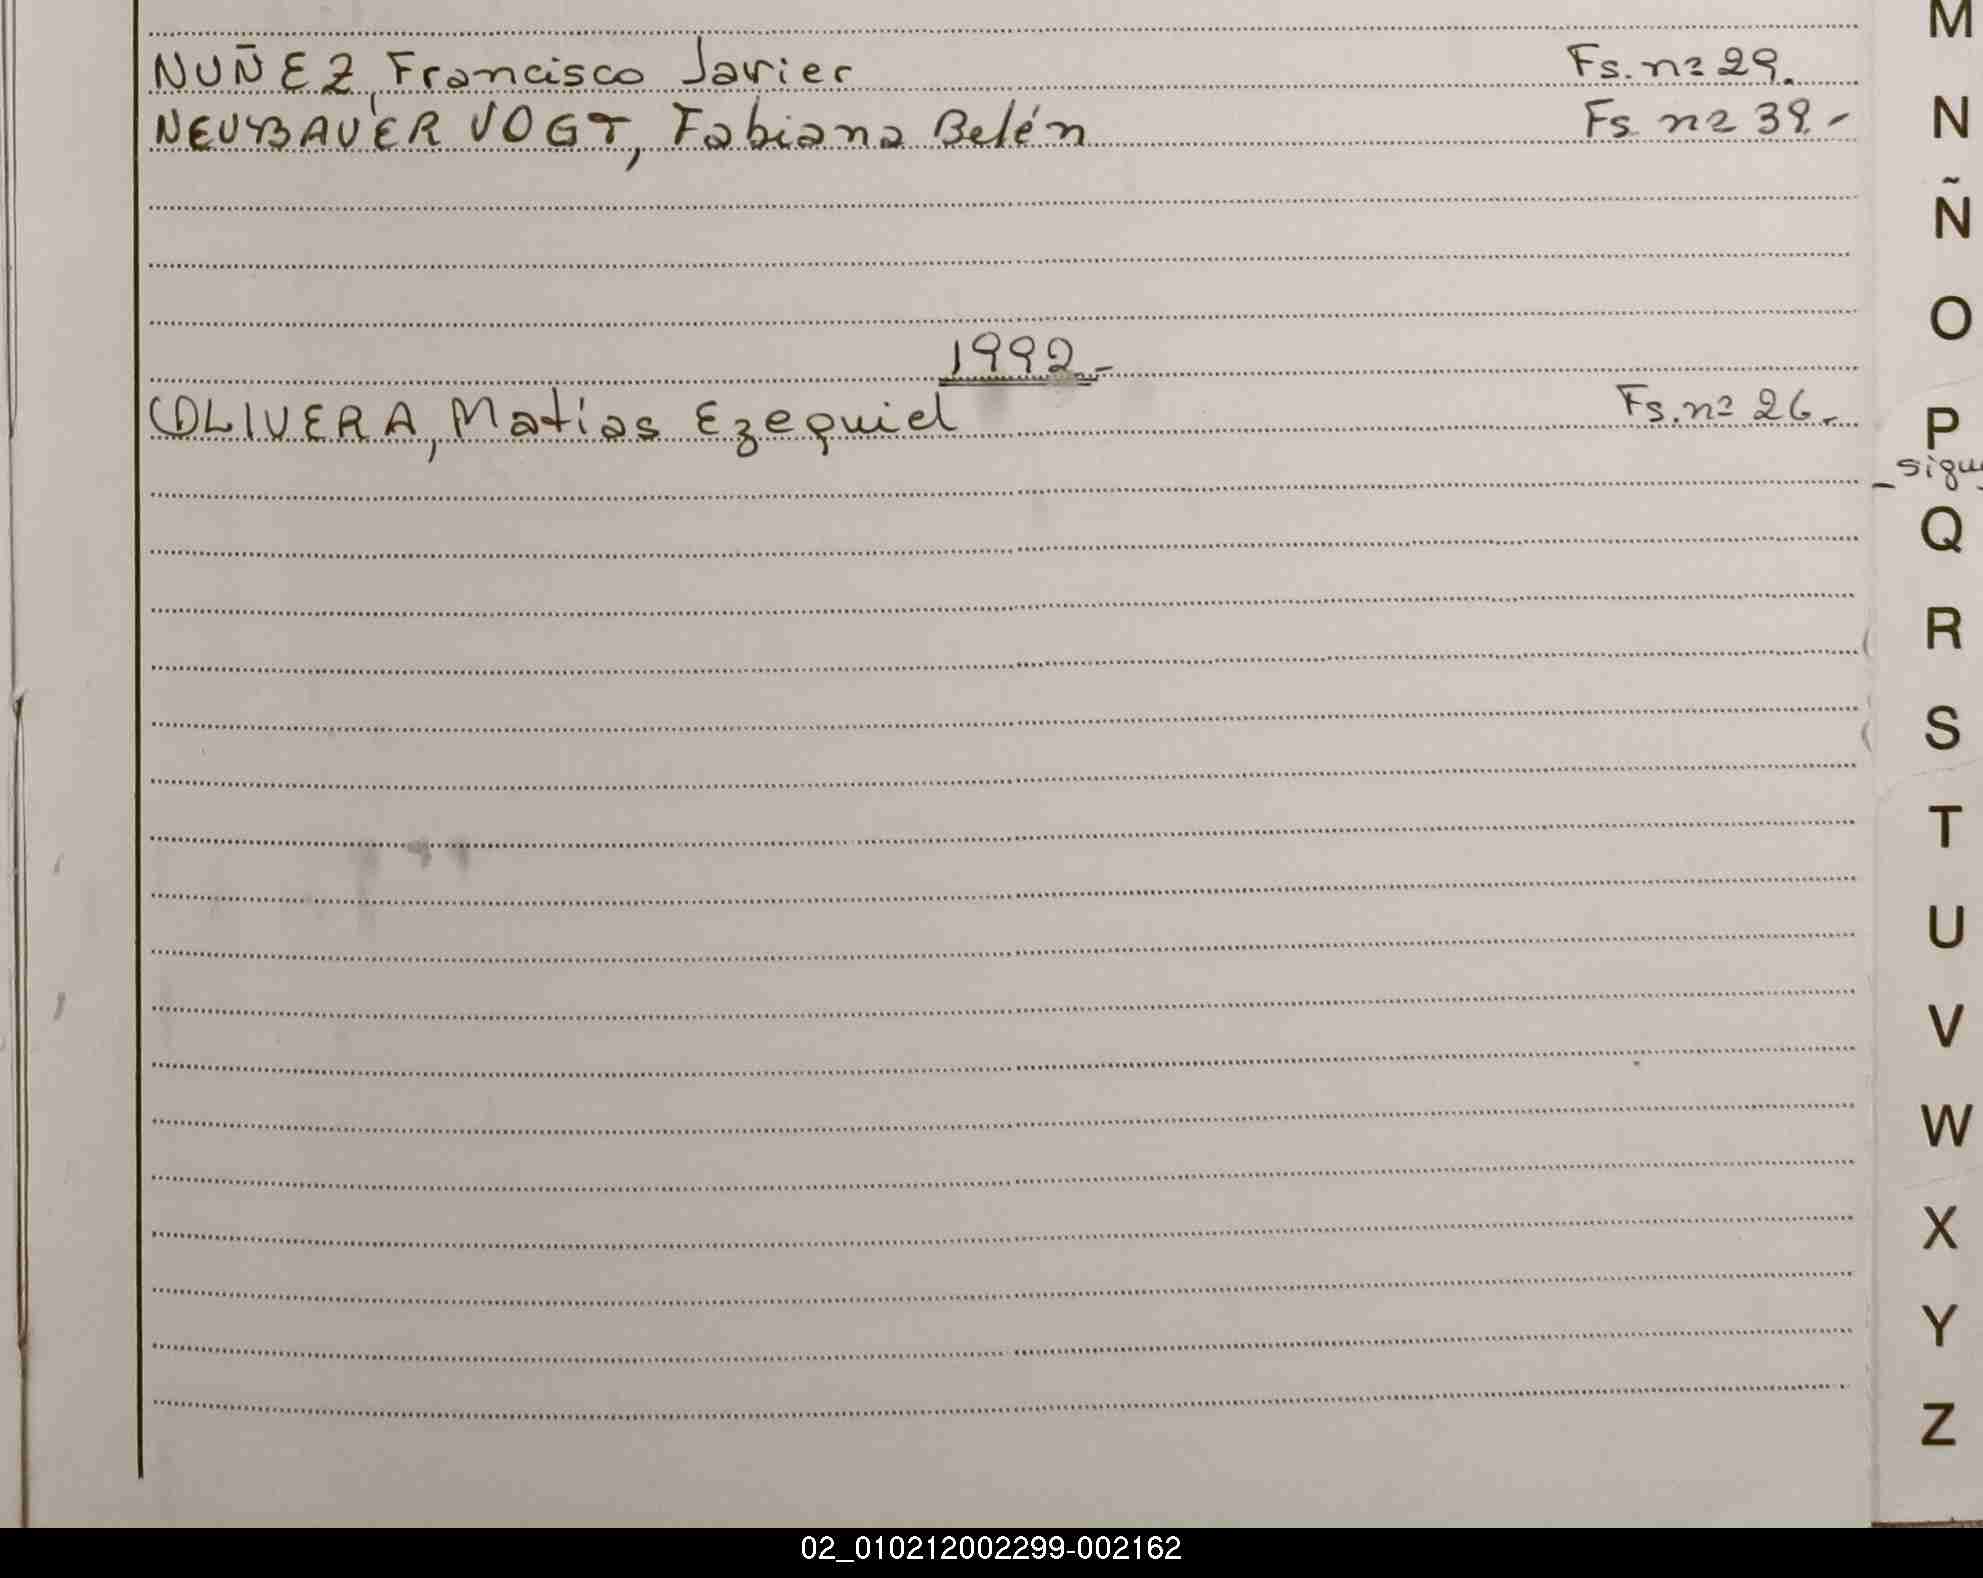 NUÑEZ, Francisco Javier Fs. nº 29.
NEUBAUER VOGT, Fabiana Belén Fs nº 39.-
1992-
OLIVERA, Matías Ezequiel Fs. nº 26.
M
N
Ñ
O
P
Q
R
S
T
U
V
W
X
Y
Z
02_010212002299-002162